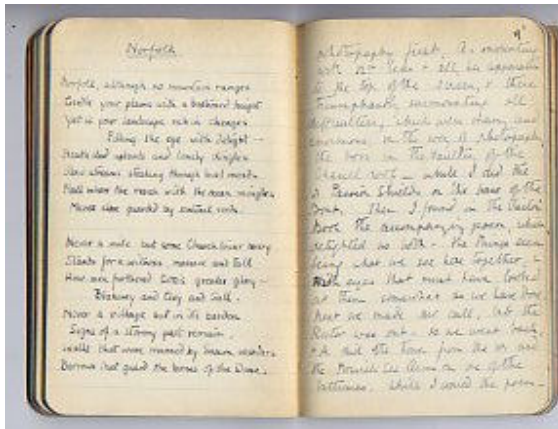 Norfolk
Norfolk, although no mountain ranges
Girdle your plains with a bastioned height
Yet is your landscape rich in changes
Filling the eye with delight —
Heath clad uplands and lonely dingles
Slow streams stealing through level meads
Flats where the marsh with the ocean mingles
Meres close guarded by sentinel reeds.
Never a mile but some Church tower hoary
Stands for a witness massive and tall
How men furthered God's greater glory —
Blakeney and Cley and Sall.
Never a village but in its garden
Signs of a stormy past remain.
Walls that were manned by warders
Barrows that guard the bones of the Dane.
9
photography first, A. mounting
to the top of the screen, & there
triumphantly surmounting all
difficulties, which were many and
enormous, in the way of photography
the boss in the vaulting of the
Chancel roof — while I did the
Passion Shields on the base of the
Font. Then I found in the
Book the accompanying poem, which
delighted us both — the things seen
being what we see here together,
with eyes that must have looked
at them somewhat as we have done
Next we made our call, but the
Rector was out — so we went back,
& A did the
the Arms on one of the
while I copied the poem —